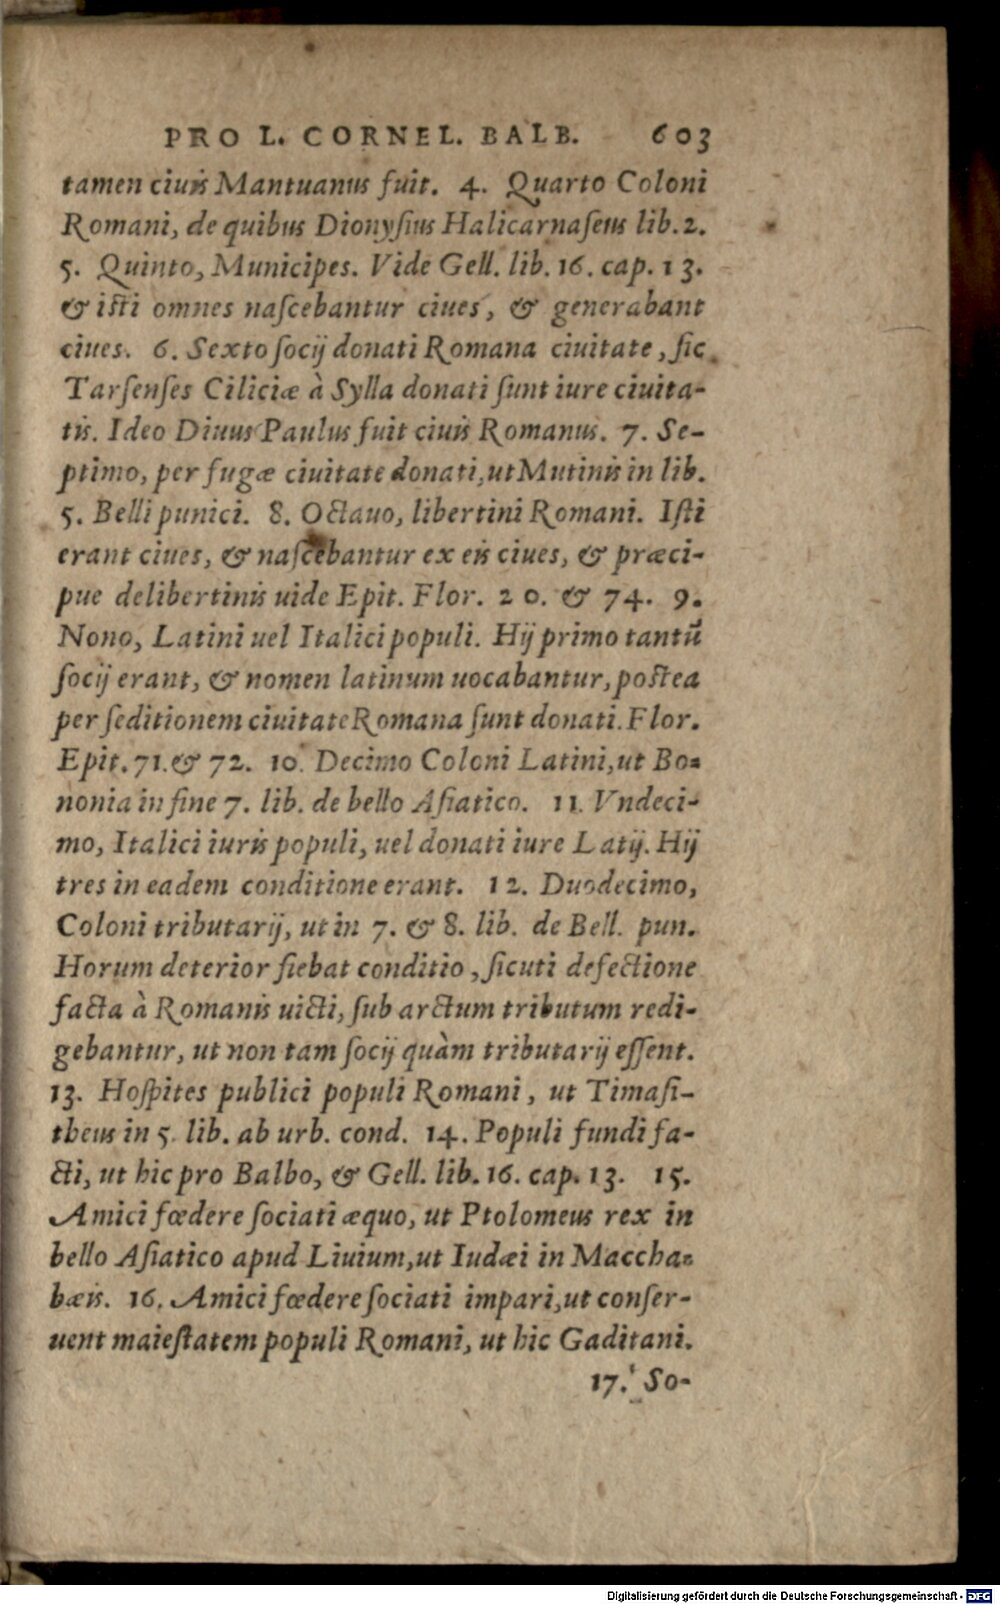 PRO L. CORNEL. BALB. 603
tamen ciuis Mantuanus fuit. 4. Quarto Coloni
Romani, de quibus Dionyſius Halicarnaſeus lib. 2.
5. Quinto, Municipes. Vide Gell. lib. 16. cap. 13.
& isti omnes naſcebantur ciues, & generabant
ciues. 6. Sexto ſocij donati Romana ciuitate, ſic
Tarſenſes Ciliciæ à Sylla donati ſunt iure ciuita-
tis. Ideo Diuus Paulus fuit ciuis Romanus. 7. Se-
ptimo, per fugæ ciuitate donati, ut Mutinis in lib.
5. Belli punici. 8. Octauo, libertini Romani. Iſti
erant ciues, & naſcebantur ex eis ciues, & præci-
pue delibertinis uide Epit. Flor. 20. & 74. 9.
Nono, Latini uel Italici populi. Hij primo tantũ
ſocij erant, & nomen latinum uocabantur, postea
per ſeditionem ciuitate Romana ſunt donati. Flor.
Epit. 71. & 72. 10. Decimo Coloni Latini, ut Bo-
nonia in fine 7. lib. de bello Aſiatico. 11. Vndeci-
mo, Italici iuris populi, uel donati iure Latij. Hij
tres in eadem conditione erant. 12. Duodecimo,
Coloni tributarij, ut in 7. & 8. lib. de Bell. pun.
Horum deterior fiebat conditio, ſicuti defectione
facta à Romanis uicti, ſub arctum tributum redi-
gebantur, ut non tam ſocij quàm tributarij eſſent.
13. Hoſpites publici populi Romani, ut Timaſi-
theus in 5. lib. ab urb. cond. 14. Populi fundi fa-
cti, ut hic pro Balbo, & Gell. lib. 16. cap. 13. 15.
Amici fœdere ſociati æquo, ut Ptolomeus rex in
bello Aſiatico apud Liuium, ut Iudæi in Maccha-
bæis. 16. Amici fœdere ſociati impari, ut conſer-
uent maieſtatem populi Romani, ut hic Gaditani.
17. So-
Digitalisierung gefördert durch die Deutsche Forschungsgemeinschaft - DFG